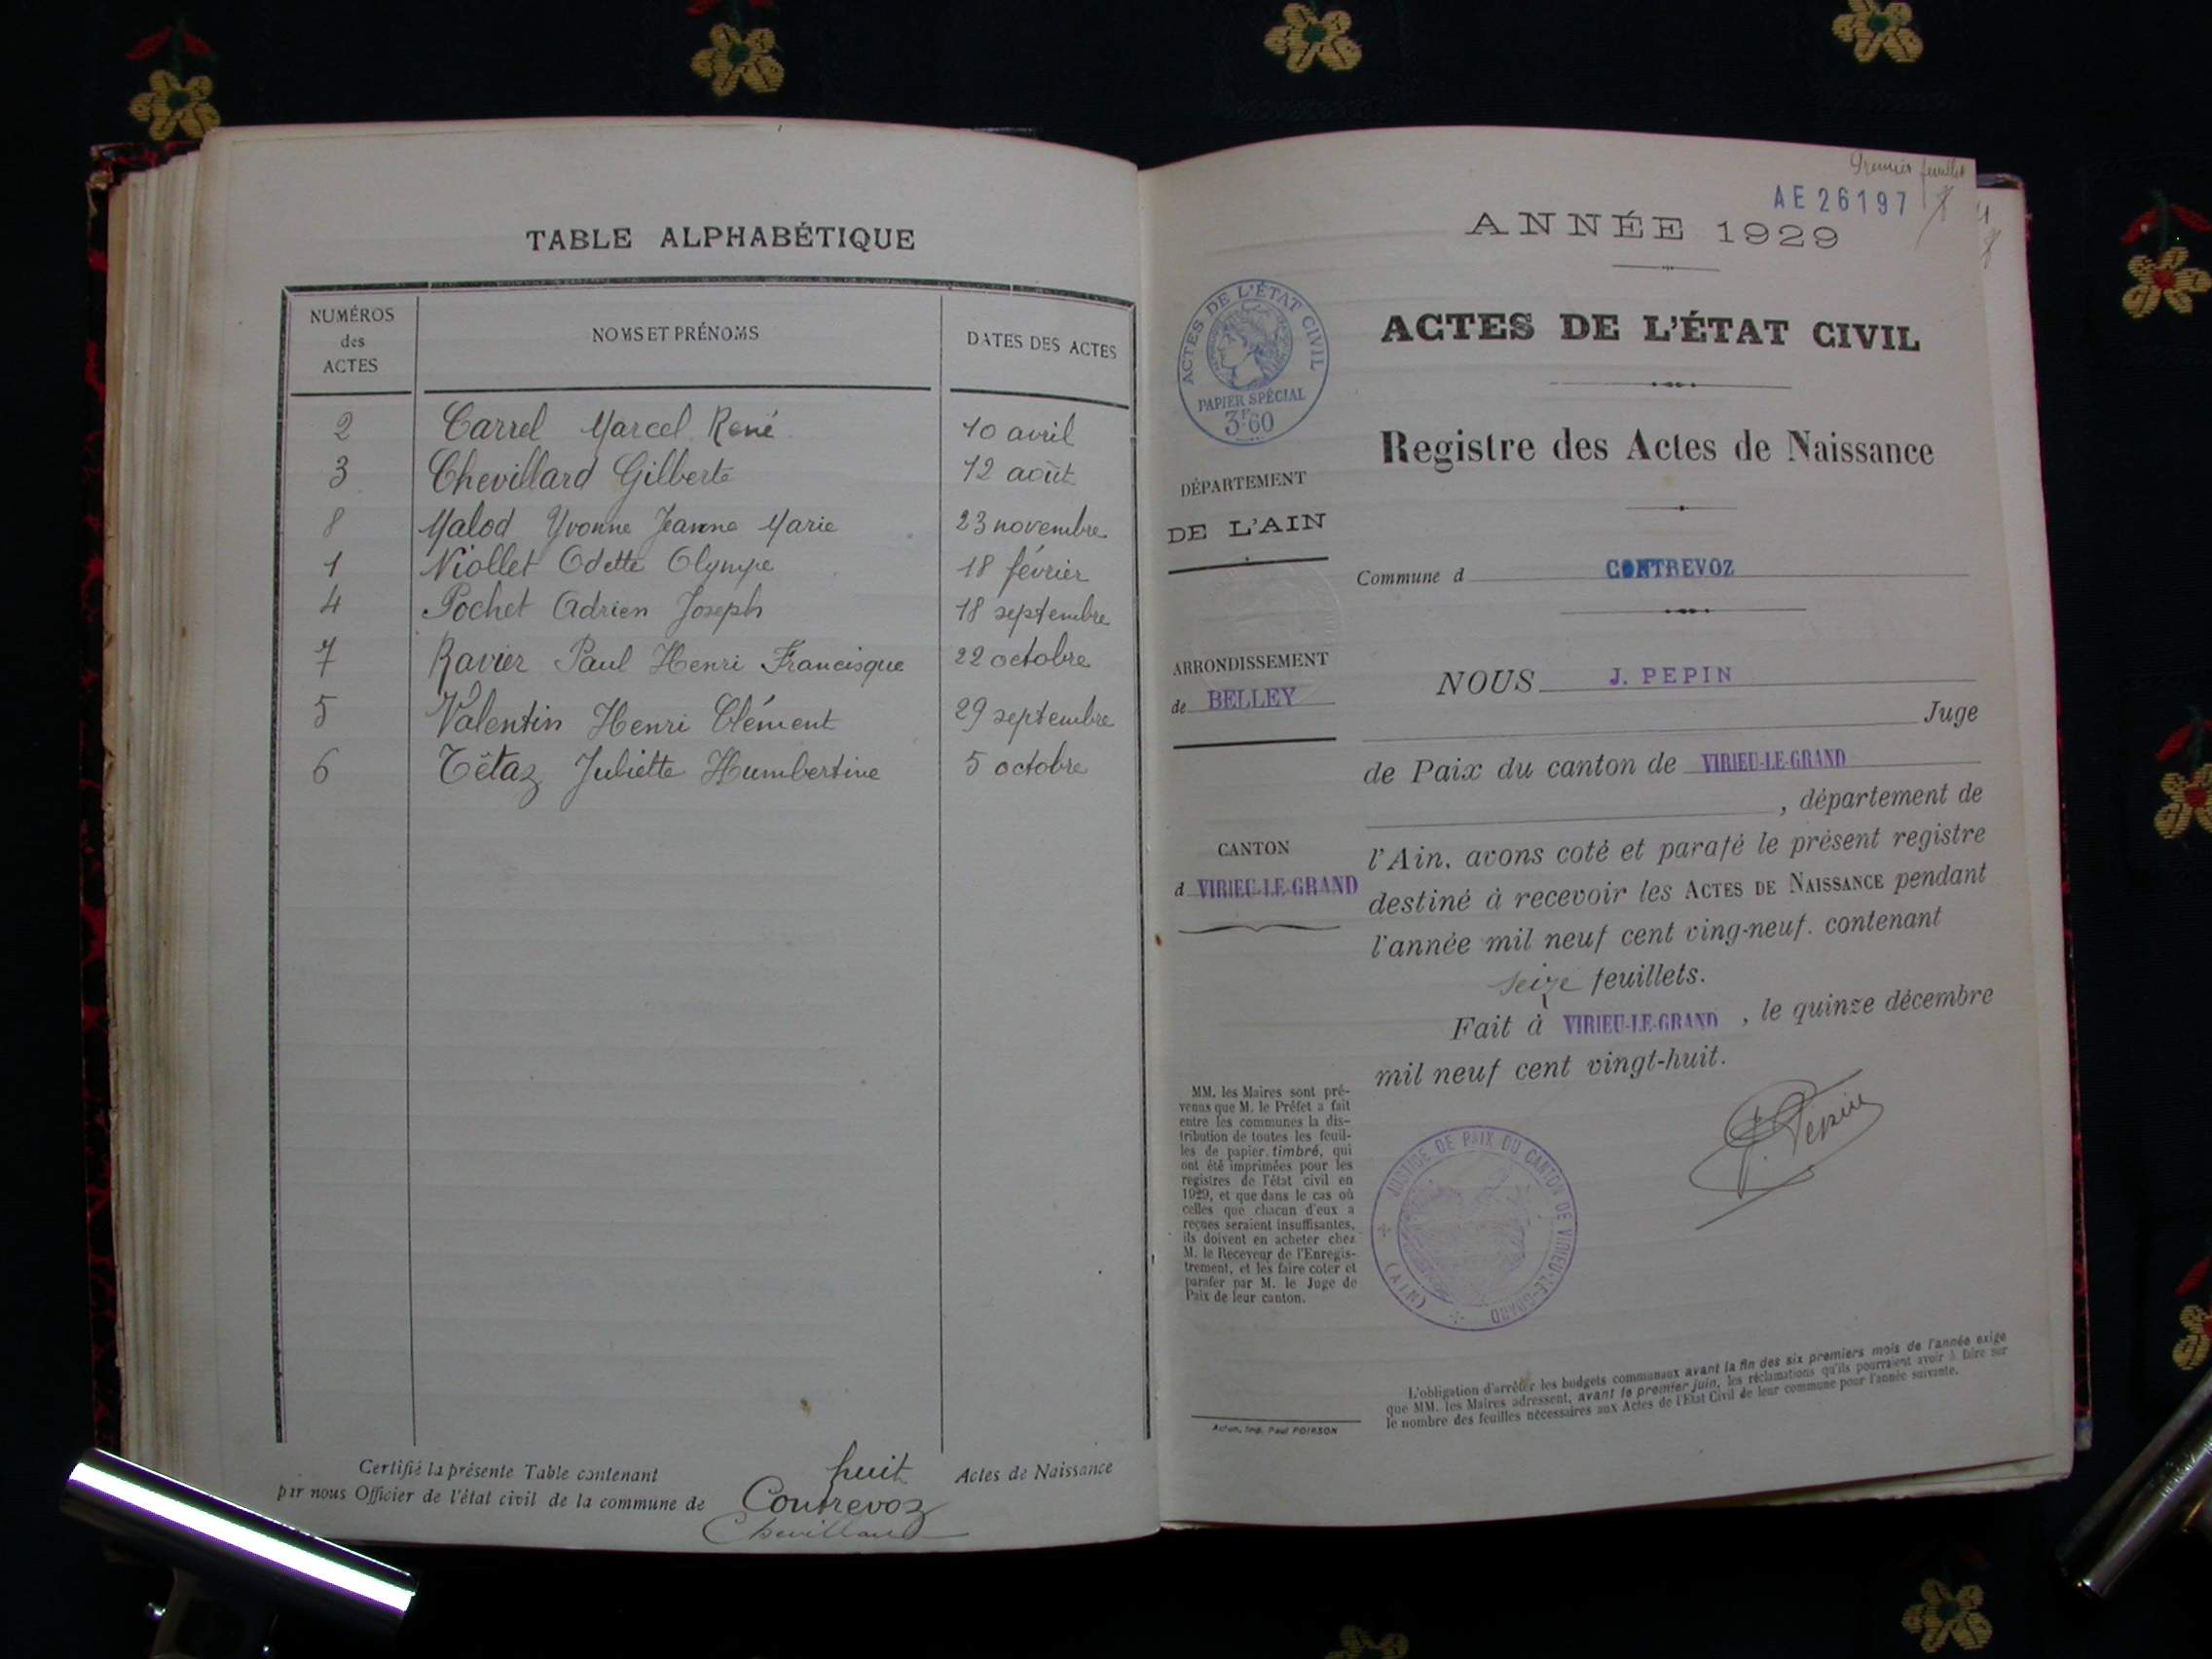 TABLE ALPHABÉTIQUE
NUMÉROS
des
ACTES
NOMS ET PRÉNOMS
DATES DES ACTES
2 Carrel Marcel René 10 avril
3 Chevillard Gilberte 12 août
8 Malod Yvonne Jeanne Marie 23 novembre
1 Niollet Odette Olympe 18 février
4 Pochet Adrien Joseph 18 septembre
7 Ravier Paul Henri Francisque 22 octobre
5 Valentin Henri Clément 29 septembre
6 Tétaz Juliette Humbertine 5 octobre
Certifié la présente Table contenant huit Actes de Naissance
par nous Officier de l'état civil de la commune de Contrevoz
Chevillard
Premier feuillet
AE 26197
ANNÉE 1929
ACTES DE L'ÉTAT CIVIL
PAPIER SPÉCIAL
3F60
ACTES DE L'ÉTAT CIVIL
Registre des Actes de Naissance
DÉPARTEMENT
DE L'AIN
Commune d CONTREVOZ
ARRONDISSEMENT
de BELLEY
CANTON
d VIRIEU-LE-GRAND
NOUS J. PEPIN
Juge
de Paix du canton de VIRIEU-LE-GRAND
, département de
l'Ain, avons coté et parafé le présent registre
destiné à recevoir les ACTES DE NAISSANCE pendant
l'année mil neuf cent ving-neuf. contenant
seize feuillets.
Fait à VIRIEU-LE-GRAND, le quinze décembre
mil neuf cent vingt-huit.
J. Pepin
JUSTICE DE PAIX DU CANTON DE VIRIEU-LE-GRAND
(AIN)
MM. les Maires sont pré-
venus que M. le Préfet a fait
entre les communes la dis-
tribution de toutes les feuil-
les de papier timbré, qui
ont été imprimées pour les
registres de l'état civil en
1929, et que dans le cas où
celles que chacun d'eux a
reçues seraient insuffisantes,
ils doivent en acheter chez
M. le Receveur de l'Enregis-
trement, et les faire coter et
parafer par M. le Juge de
Paix de leur canton.
L'obligation d'arrêter les budgets communaux avant la fin des six premiers mois de l'année exige
que MM. les Maires adressent, avant le premier juin, les réclamations qu'ils pourraient avoir à faire sur
le nombre des feuilles nécessaires aux Actes de l'Etat Civil de leur commune pour l'année suivante.
Imp. Paul POIRSON